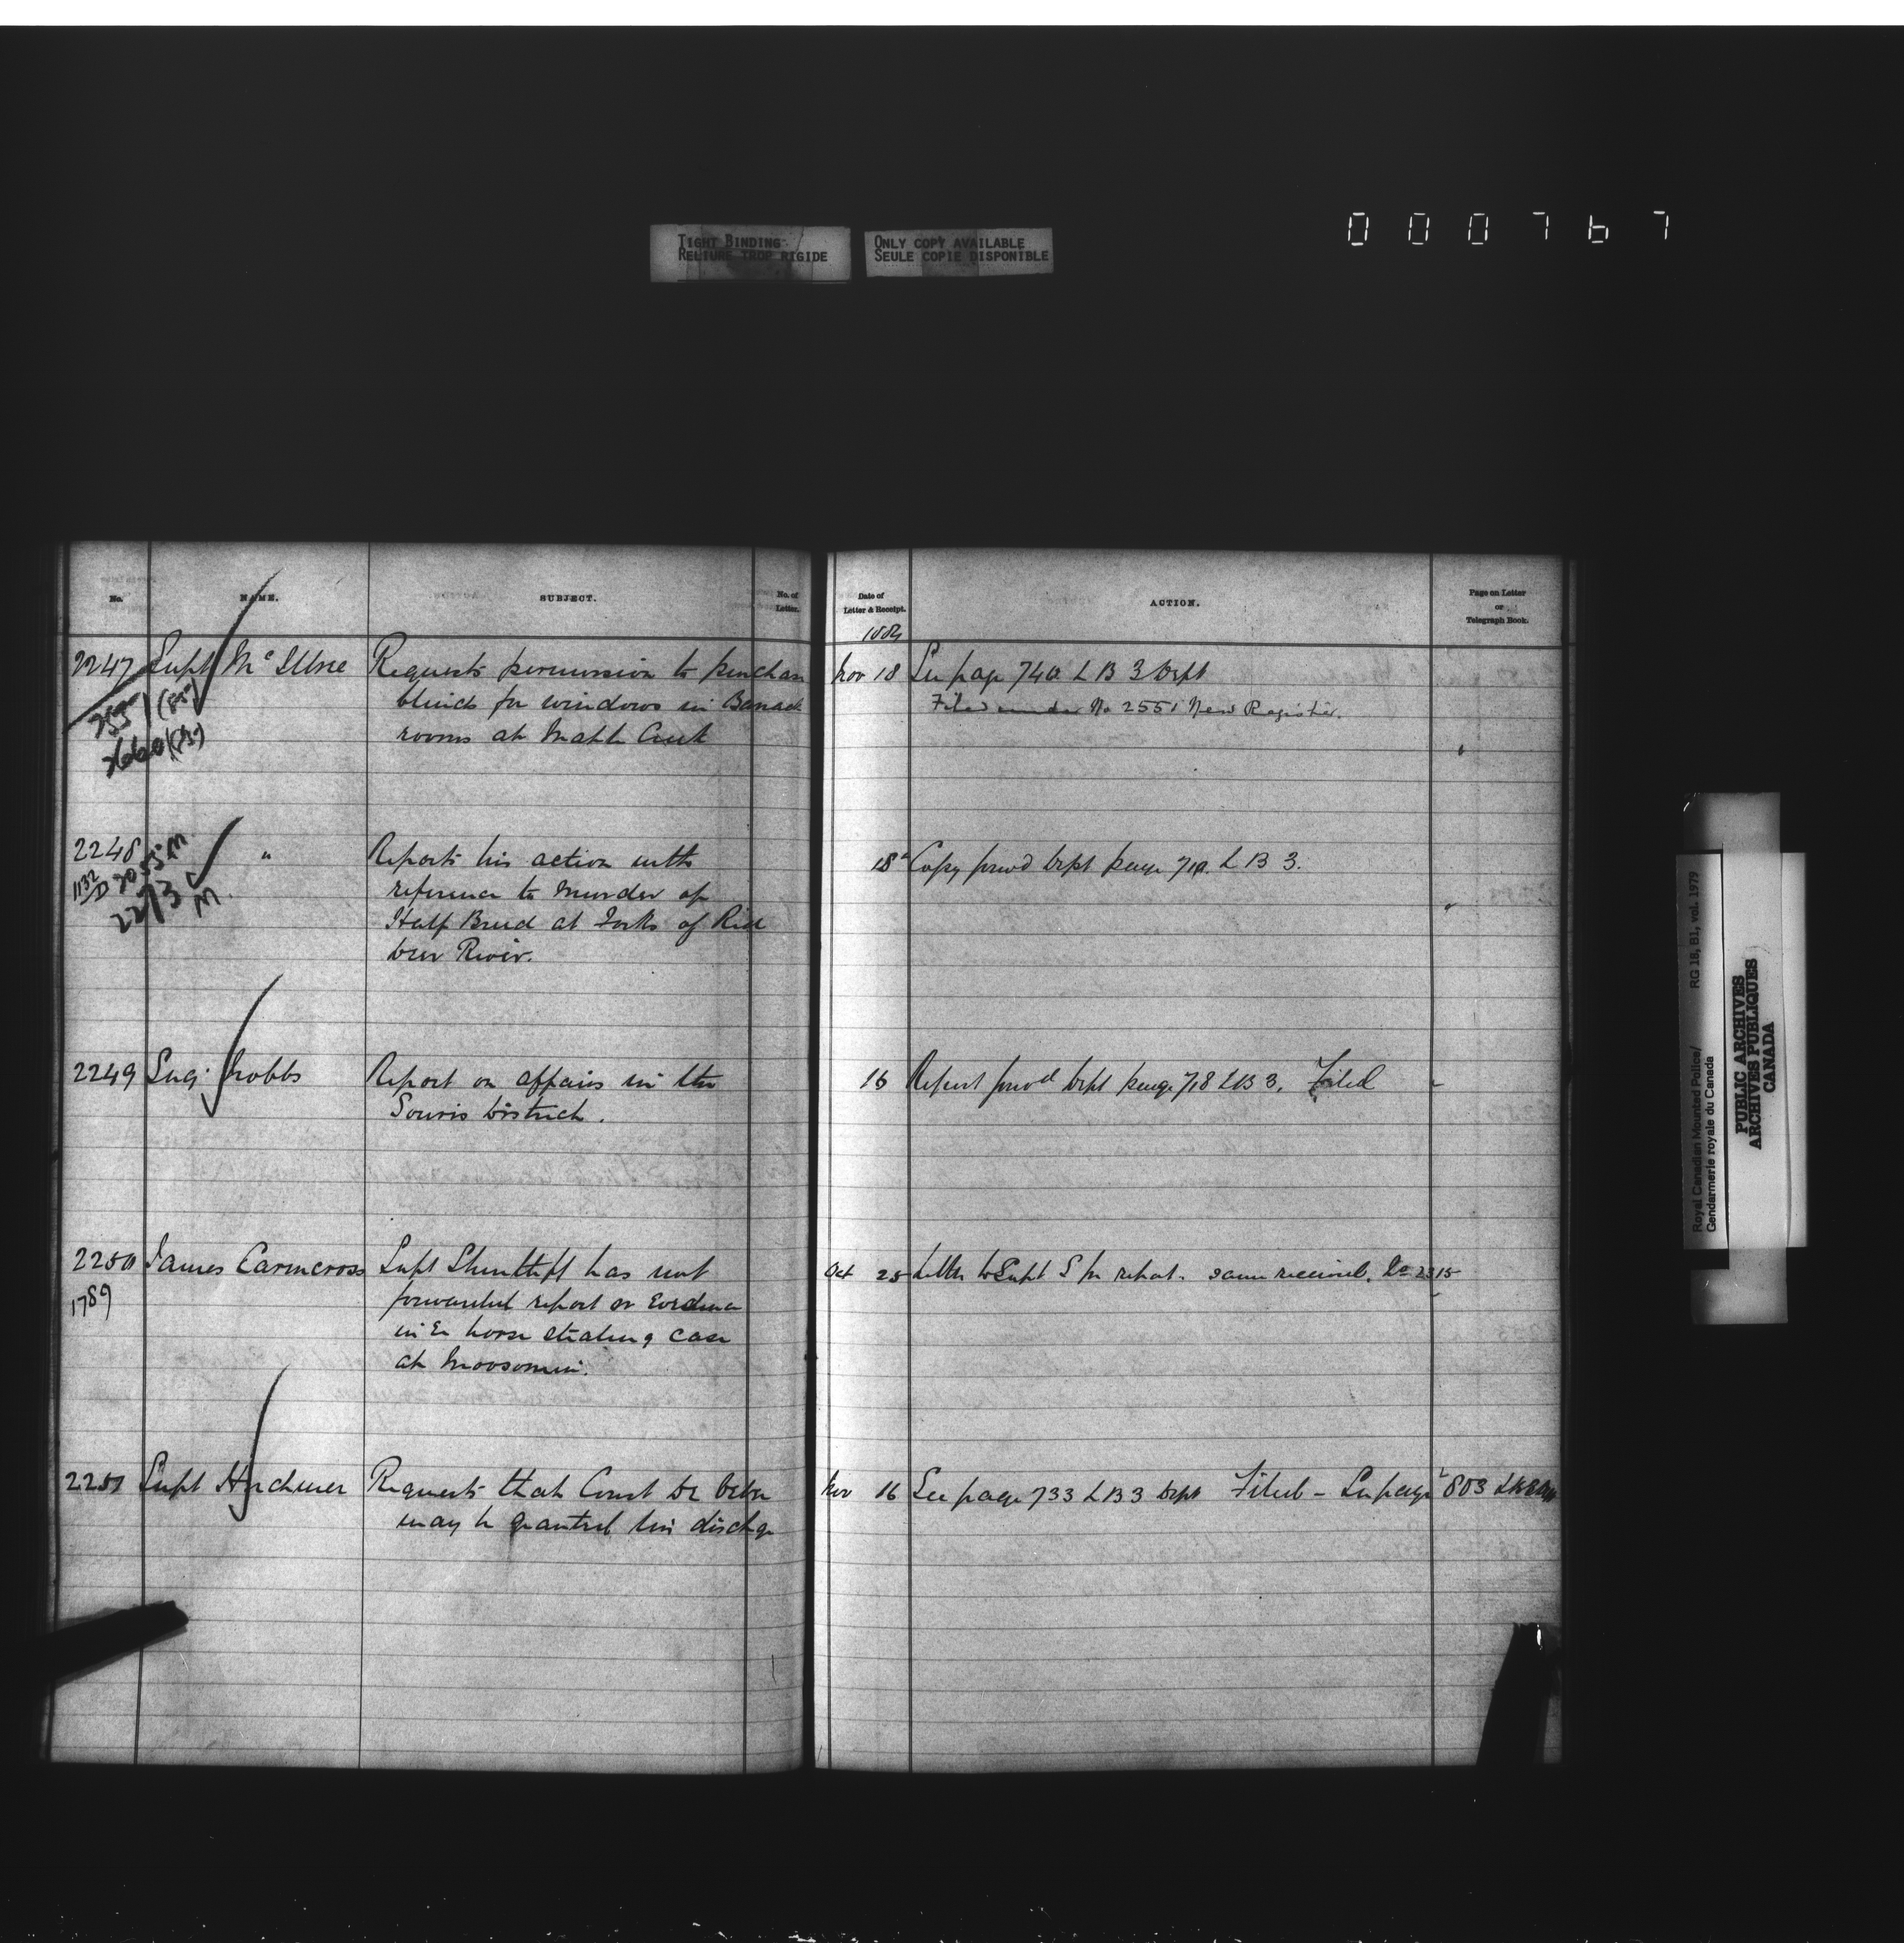 TIGHT BINDING
RELIURE TROP RIGIDE
ONLY COPY AVAILABLE
SEULE COPIE DISPONIBLE
000767
No.
NAME.
SUBJECT.
No. of
Letter.
Date of
Letter & Receipt.
ACTION.
Page on Letter
or
Telegraph Book.
1884
2247 Supt McIllree Requests permission to purchase
blinds for windows in Barrack
rooms at Maple Creek
2551 (85)
2660 (85)
Nov 18 See page 740 L B 3 Dept
Filed under No 2551 New Register.
2248 " Reports his action with
reference to Murder of
Half Breed at Forks of Red
Deer River.
1132
2213
M
18 Copy forwd Dept page 719. L B 3.
2249 Insp. Hobbs Report on affairs in the
Souris District.
16 Report forwd Dept page 718 L B 3. Filed
2250 James Carncross Supt Shurtliff has not
1789
forwarded report or Evidence
in horse stealing case
at Moosomin.
Oct 25 Letter to Supt S for report. same received. 2315
2251 Supt Herchmer Requests that Const De
may be granted his dischge
Nov 16 See page 733 L B 3 Dept Filed - See page 803
Royal Canadian Mounted Police/
Gendarmerie royale du Canada
RG 18, B1, vol. 1979
PUBLIC ARCHIVES
ARCHIVES PUBLIQUES
CANADA